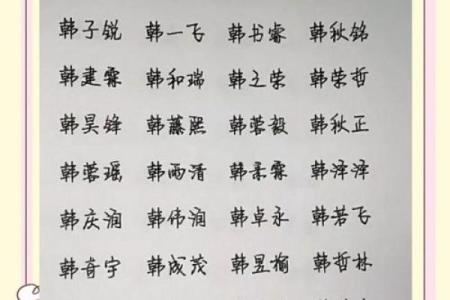 韩子锐 韩一飞 韩书睿 韩秋铭
韩建霖 韩和瑞 韩立荣 韩荣哲
韩昊锋 韩藤熙 韩蓉毅 韩秋正
韩蓉瑶 韩雨清 韩柔霖 韩泽泽
韩庆润 韩伟润 韩卓永 韩若飞
韩奇宇 韩成茂 韩昱榆 韩哲林